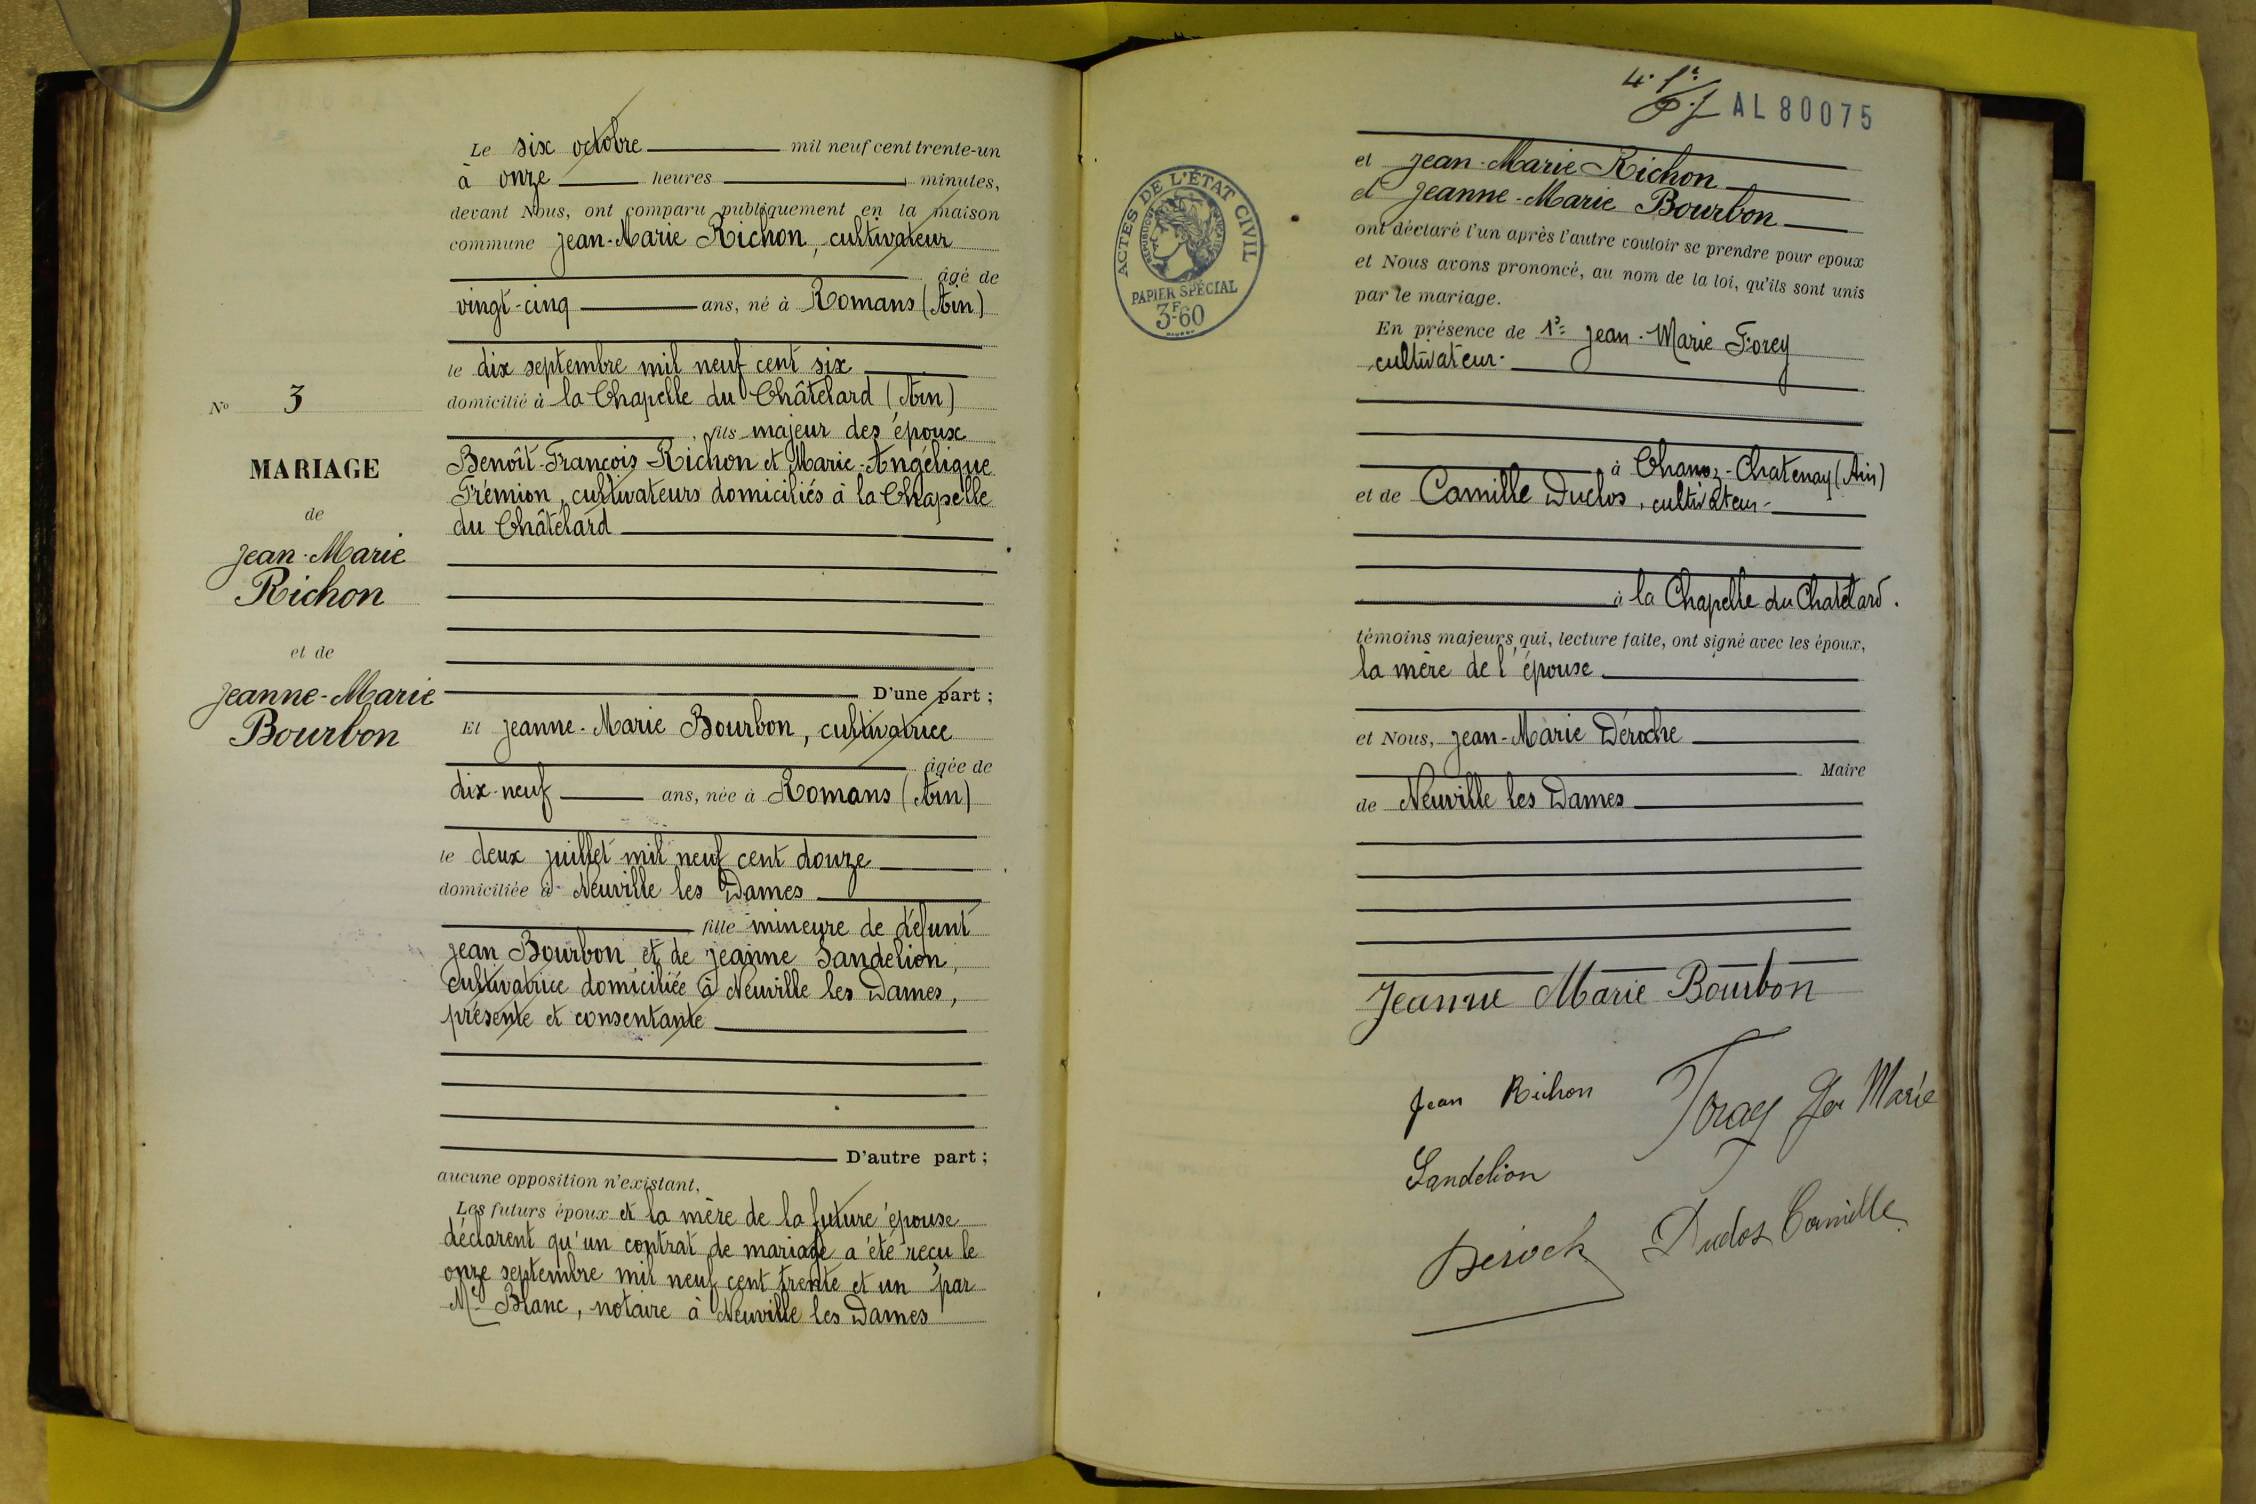 Le six octobre mil neuf cent trente-un
à onze heures minutes,
devant Nous, ont comparu publiquement en la maison
commune Jean-Marie Richon, cultivateur
âgé de
vingt-cinq ans, né à Romans (Ain)
le dix septembre mil neuf cent six
domicilié à la Chapelle du Châtelard (Ain)
fils majeur des époux
Benoît-François Richon et Marie-Angélique
Frémion, cultivateurs domiciliés à la Chapelle
du Châtelard
No 3
MARIAGE
de
Jean-Marie
Richon
et de
Jeanne-Marie
Bourbon
D'une part ;
Et Jeanne-Marie Bourbon, cultivatrice
âgée de
dix-neuf ans, née à Romans (Ain)
le deux juillet mil neuf cent douze
domiciliée à Neuville les Dames
fille mineure de défunt
Jean Bourbon et de Jeanne Sandelion,
cultivatrice domiciliée à Neuville les Dames,
présente et consentante
D'autre part ;
aucune opposition n'existant,
Les futurs époux et la mère de la future épouse
déclarent qu'un contrat de mariage a été reçu le
onze septembre mil neuf cent trente et un par
Me Blanc, notaire à Neuville les Dames
AL 80075
ACTES DE L'ÉTAT CIVIL
RÉPUBLIQUE FRANÇAISE
PAPIER SPÉCIAL
3F60
et Jean-Marie Richon
et Jeanne-Marie Bourbon
ont déclaré l'un après l'autre vouloir se prendre pour epoux
et Nous avons prononcé, au nom de la loi, qu'ils sont unis
par le mariage.
En présence de 1º= Jean-Marie Forey
cultivateur.
à Chanoz-Chatenay (Ain)
et de Camille Duclos, cultivateur
à la Chapelle du Chatelard.
témoins majeurs, qui, lecture faite, ont signé avec les époux,
la mère de l'épouse
et Nous, Jean-Marie Déroche
Maire
de Neuville les Dames
Jeanne Marie Bourbon
Jean Richon
Forey Jn Marie
Sandelion
Deroch
Duclos Camille